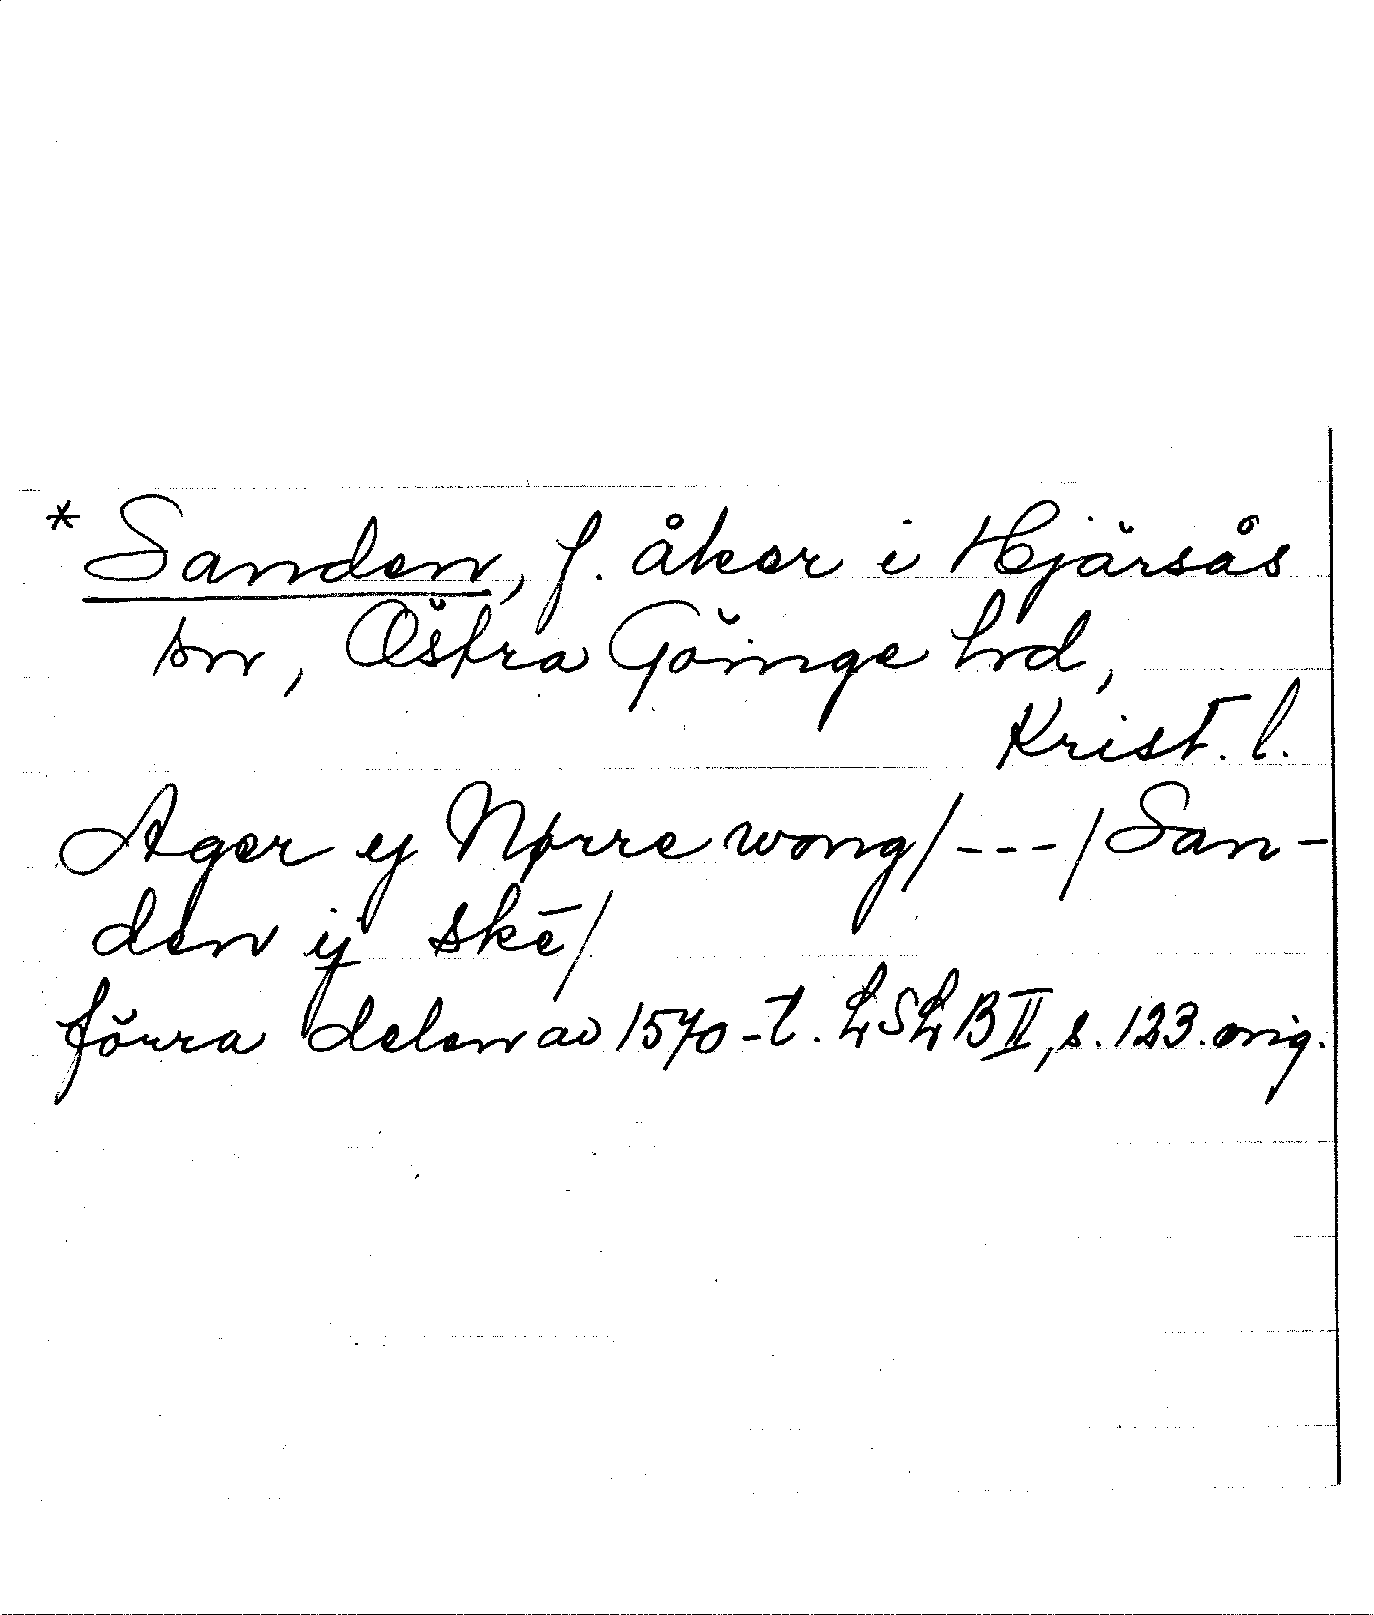 * Sanden, f. åker i Hjärsås
sn, Östra Göinge hrd,
Krist. l.
Ager ij Nørre wong/---/San-
den ij skē/
förra delen av 1570-t. LSLB II, s. 123. orig.